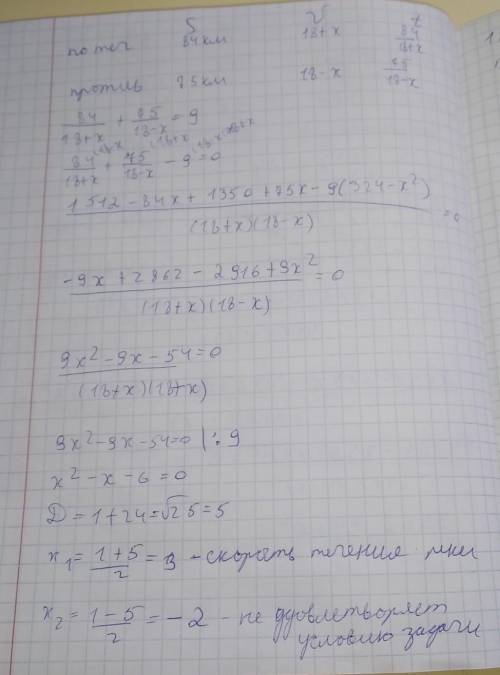 S v t
по теч 84км 18+x 84/18+x
против 75км 18-x 75/18-x
84/18+x + 75/18-x = 9
84/18+x + 75/18-x - 9 = 0
1512 - 84x + 1350 + 75x - 9(324 - x²) / (18+x)(18-x) = 0
-9x + 2862 - 2916 + 9x² / (18+x)(18-x) = 0
9x² - 9x - 54 = 0 / (18+x)(18+x)
9x² - 9x - 54 = 0 | : 9
x² - x - 6 = 0
D = 1 + 24 = √25 = 5
x₁ = 1+5/2 = 3 - скорость течения реки
x₂ = 1-5/2 = -2 - не удовлетворяет
условию задачи